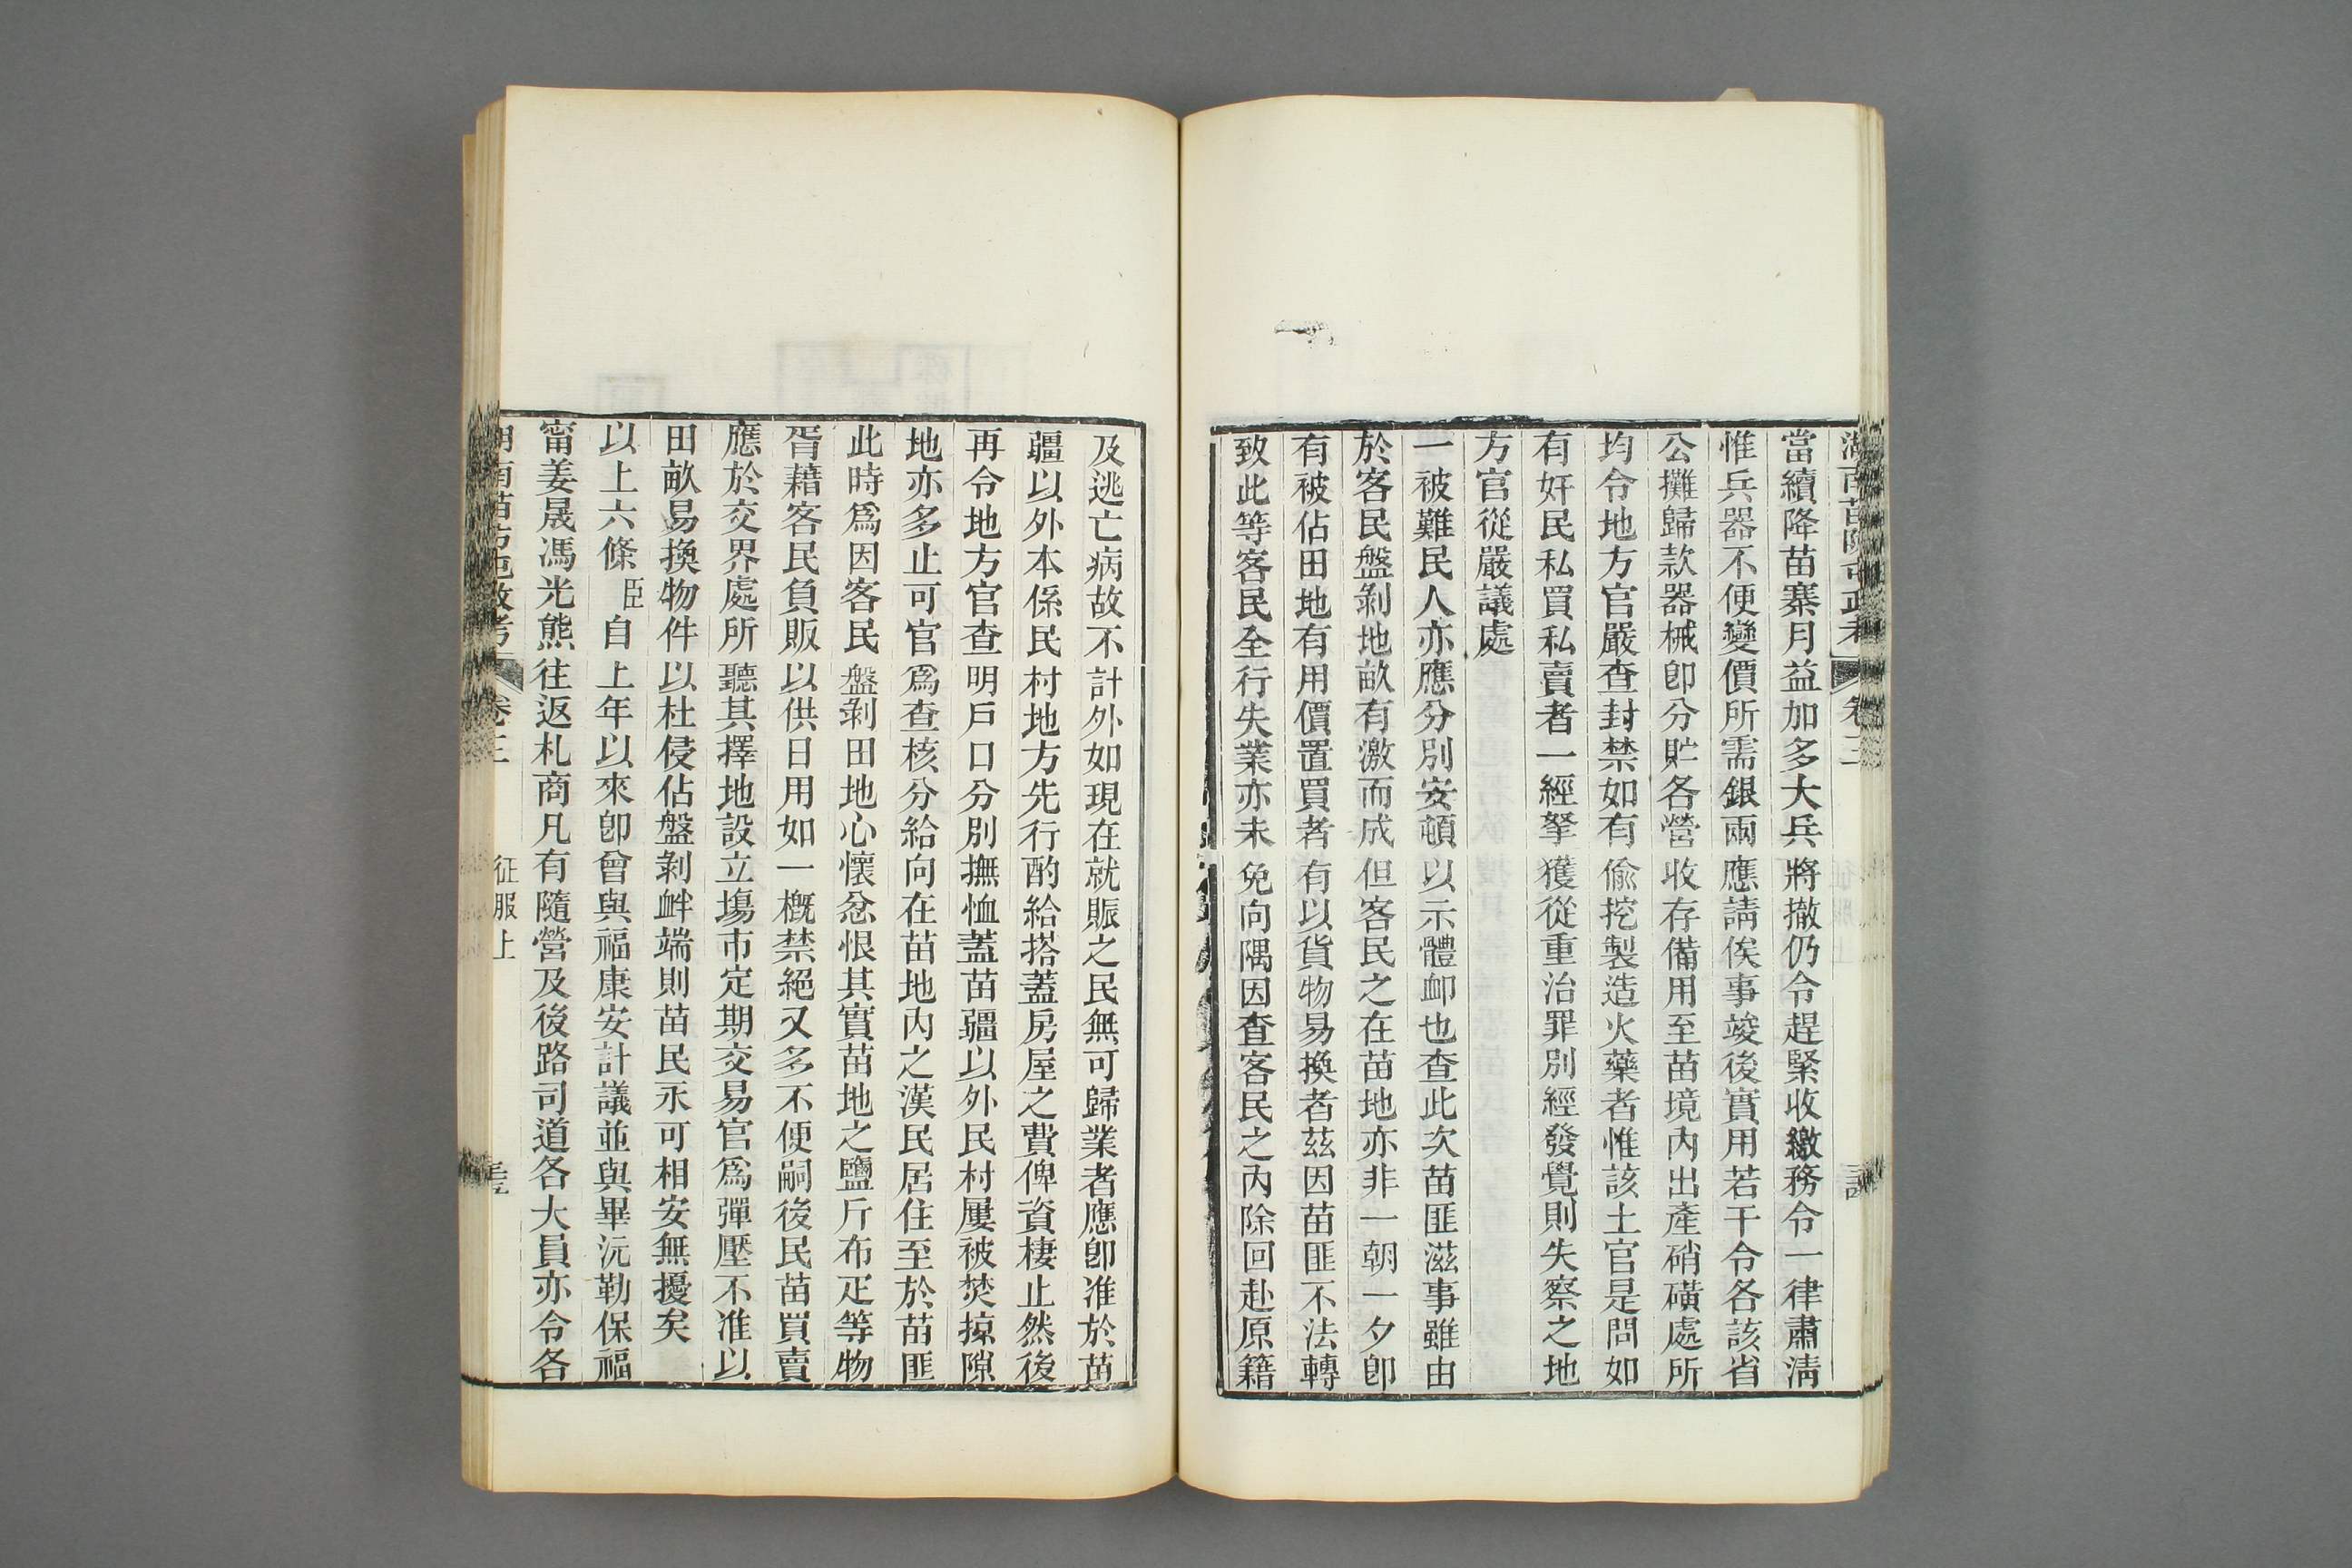 當續降苗寨月益加多大兵將撤仍令趕緊收繳務令一律肅清
惟兵器不便變價所需銀兩應請俟事竣後實用若干令各該省
公攤歸款器械卽分貯各營收存備用至苗境內出產硝磺處所
均令地方官嚴查封禁如有偷挖製造火藥者惟該土官是問如
有奸民私買私賣者一經拏獲從重治罪別經發覺則失察之地
方官從嚴議處
一被難民人亦應分別安頓以示體卹也查此次苗匪滋事雖由
於客民盤剝地畝有激而成但客民之在苗地亦非一朝一夕卽
有被佔田地有用價置買者有以貨物易換者茲因苗匪不法轉
致此等客民全行失業亦未免向隅因查客民之內除回赴原籍
及逃亡病故不計外如現在就賑之民無可歸業者應卽准於苗
疆以外本係民村地方先行酌給搭蓋房屋之費俾資棲止然後
再令地方官查明戶口分別撫恤蓋苗疆以外民村屢被焚掠隙
地亦多止可官爲查核分給向在苗地內之漢民居住至於苗匪
此時爲因客民盤剝田地心懷忿恨其實苗地之鹽斤布疋等物
胥藉客民負販以供日用如一概禁絕又多不便嗣後民苗買賣
應於交界處所聽其擇地設立塲市定期交易官爲彈壓不准以
田畝易換物件以杜侵佔盤剝衅端則苗民永可相安無擾矣
以上六條臣自上年以來卽曾與福康安計議並與畢沅勒保福
甯姜晟馮光熊往返札商凡有隨營及後路司道各大員亦令各
卷三
征服上